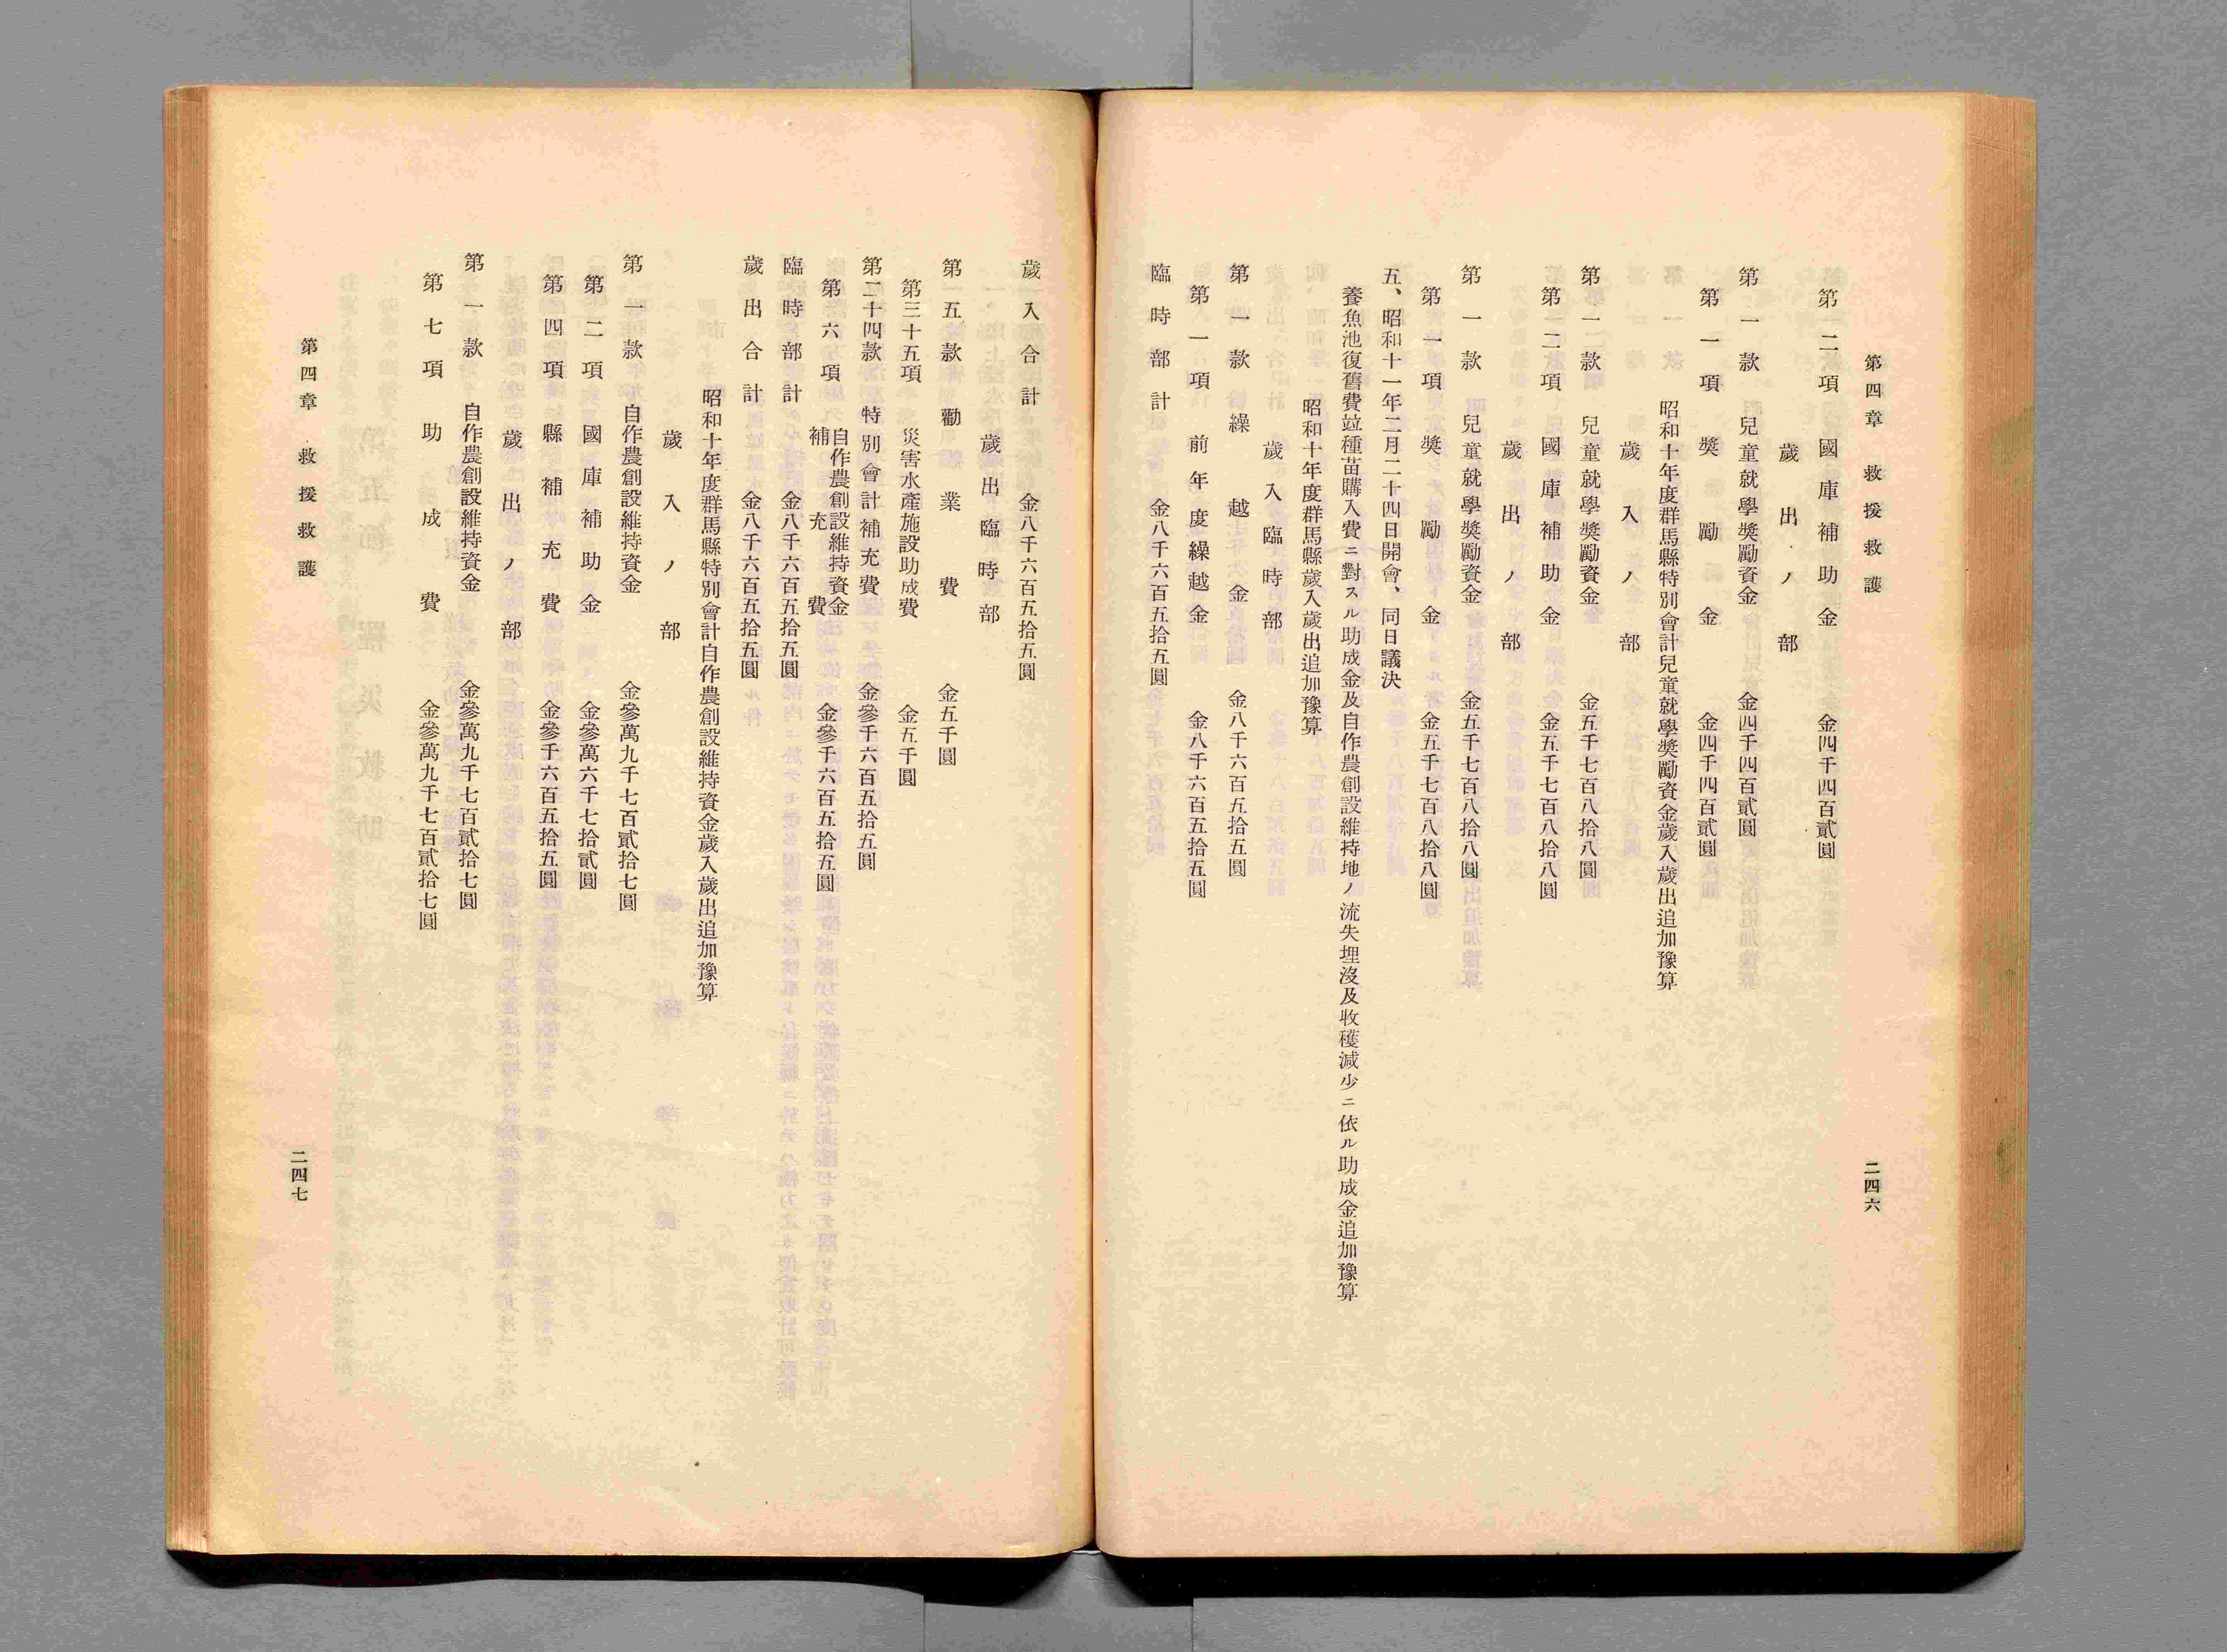 第四章 救援救護
第二項 國庫補助金 金四千四百貳圓
歲出ノ部
第一款 兒童就學奬勵資金 金四千四百貳圓
第一項 奬勵金 金四千四百貳圓
昭和十年度群馬縣特別會計兒童就學奬勵資金歲入歲出追加豫算
歲入ノ部
第一款 兒童就學奬勵資金 金五千七百八拾八圓
第二項 國庫補助金 金五千七百八拾八圓
歲出ノ部
第一款 兒童就學奬勵資金 金五千七百八拾八圓
第一項 奬勵金 金五千七百八拾八圓
五、昭和十一年二月二十四日開會、同日議決
養魚池復舊費竝種苗購入費ニ對スル助成金及自作農創設維持地ノ流失埋沒及收穫減少ニ依ル助成金追加豫算
昭和十年度群馬縣歲入歲出追加豫算
歲入臨時部
第一款 繰越金 金八千六百五拾五圓
第一項 前年度繰越金 金八千六百五拾五圓
臨時部計 金八千六百五拾五圓
二四六
歲入合計 金八千六百五拾五圓
歲出臨時部
第五款 勸業費 金五千圓
第三十五項 災害水產施設助成費 金五千圓
第二十四款 特別會計補充費 金參千六百五拾五圓
第六項 自作農創設維持資金
補充費 金參千六百五拾五圓
臨時部計 金八千六百五拾五圓
歲出合計 金八千六百五拾五圓
昭和十年度群馬縣特別會計自作農創設維持資金歲入歲出追加豫算
歲入ノ部
第一款 自作農創設維持資金 金參萬九千七百貳拾七圓
第二項 國庫補助金 金參萬六千七拾貳圓
第四項 縣補充費 金參千六百五拾五圓
歲出ノ部
第一款 自作農創設維持資金 金參萬九千七百貳拾七圓
第七項 助成費 金參萬九千七百貳拾七圓
第四章 救援救護
二四七